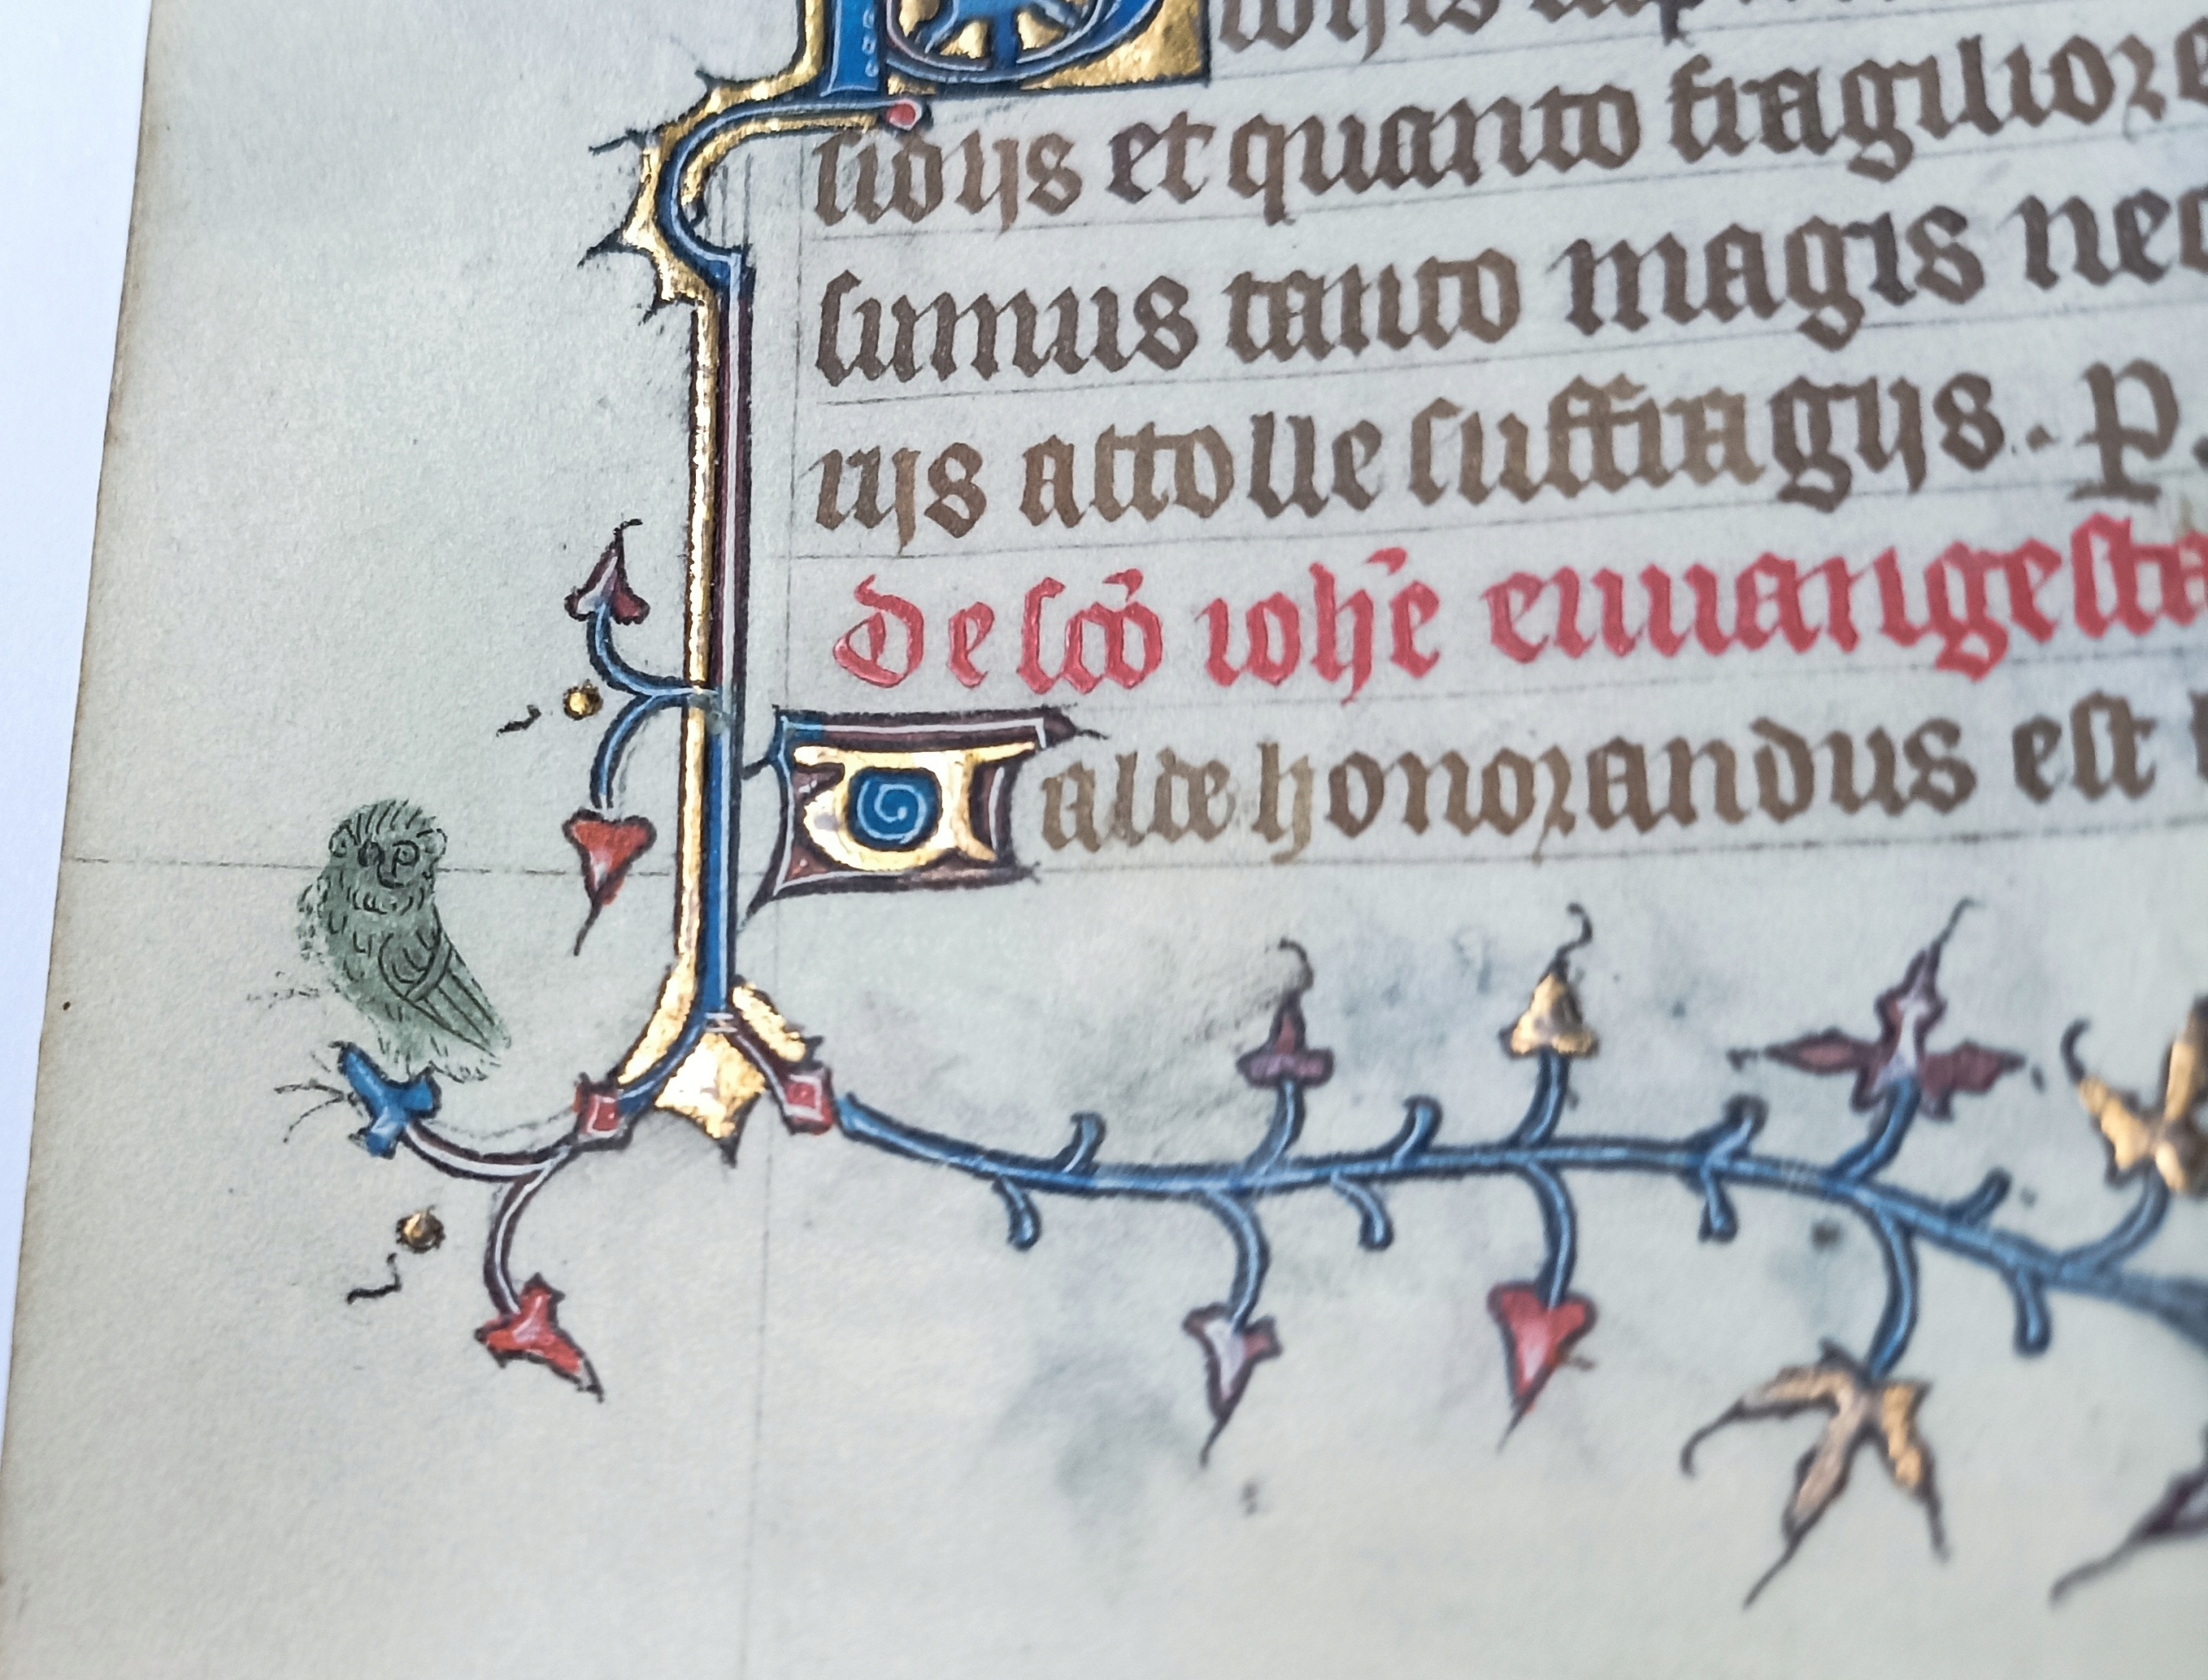 sidijs et quanto fragiliores
sumus tanto magis nec
riis attolle suffragijs. P.
De sco ioh'e euuangelista
Valde honorandus est